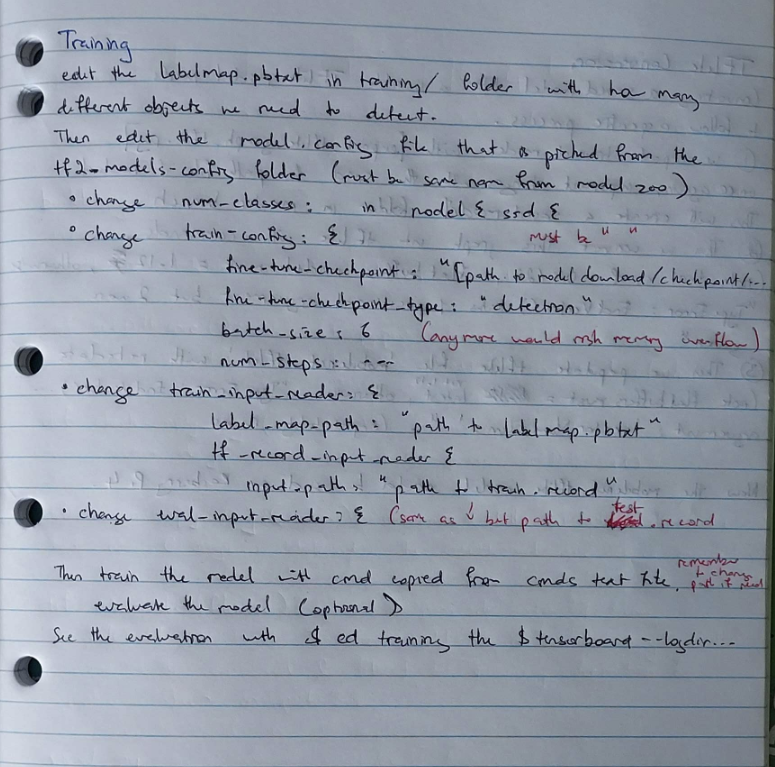 Training
edit the labelmap.pbtxt in training/ folder with how many
different objects we need to detect.
Then edit the model.config file that is picked from the
tf2-models-config folder (must be same name from model zoo)
• change num-classes: in model { ssd {
• change train-config: { must be " "
fine-tune-checkpoint: "[path to model download/checkpoint/...
fine-tune-checkpoint_type: "detection"
batch-size: 6 (any more would risk memory overflow)
num-steps:
• change train-input-reader: {
label-map-path: "path to labelmap.pbtxt"
tf-record-input-reader {
input-path: "path to train.record"
• change eval-input-reader: { (same as ↓ but path to test.record
Then train the model with cmd copied from cmds text file. remember to change path if need
evaluate the model (optional)
See the evaluation with $ cd training the $ tensorboard --logdir...